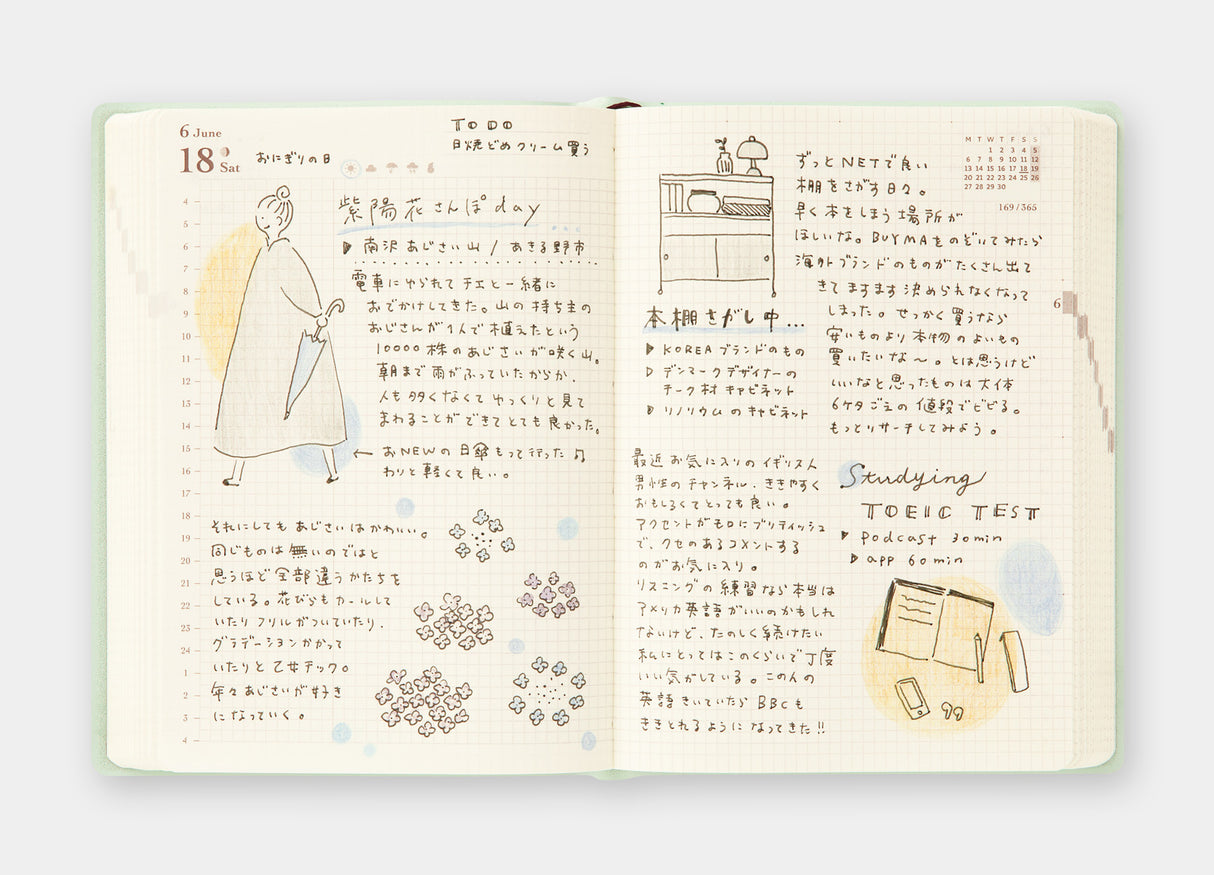 6 June
18 Sat
おにぎりの日
TO DO
日焼どめクリーム買う
紫陽花さんぽday
南沢あじさい山 / あきる野市
電車にゆられてチエと一緒に
おでかけしてきた。山の持ち主の
おじさんが1人で植えたという
10000株のあじさいが咲く山。
朝まで雨がふっていたからか、
人も多くなくてゆっくりと見て
まわることができてとても良かった。
← おNEWの日傘もって行った♫
わりと軽くて良い。
それにしてもあじさいはかわいい。
同じものは無いのではと
思うほど全部違うかたちを
している。花びらもカールして
いたりフリルがついていたり、
グラデーションかかって
いたりと乙女チック。
年々あじさいが好き
になっていく。
4
5
6
7
8
9
10
11
12
13
14
15
16
17
18
19
20
21
22
23
24
1
2
3
4
M T W T F S S
1 2 3 4 5
6 7 8 9 10 11 12
13 14 15 16 17 18 19
20 21 22 23 24 25 26
27 28 29 30
169/365
6
ずっとNETで良い
棚をさがす日々。
早く本をしまう場所が
ほしいな。BUYMAをのぞいてみたら
海外ブランドのものがたくさん出て
きてますます決められなくなって
しまった。せっかく買うなら
安いものより本物のよいもの
買いたいな〜。とは思うけど
いいなと思ったものは大体
6ケタごえの値段でビビる。
もっとリサーチしてみよう。
本棚さがし中...
KOREAブランドのもの
デンマークデザイナーの
チーク材キャビネット
リノリウムのキャビネット
最近お気に入りのイギリス人
男性のチャンネル、ききやすく
おもしろくてとっても良い。
アクセントがモロにブリティッシュ
で、クセのあるコメントする
のがお気に入り。
リスニングの練習なら本当は
アメリカ英語がいいのかもしれ
ないけど、たのしく続けたい
私にとってはこのくらいで丁度
いい気がしている。この人の
英語きいていたらBBCも
ききとれるようになってきた!!
Studying
TOEIC TEST
podcast 30min
app 60min